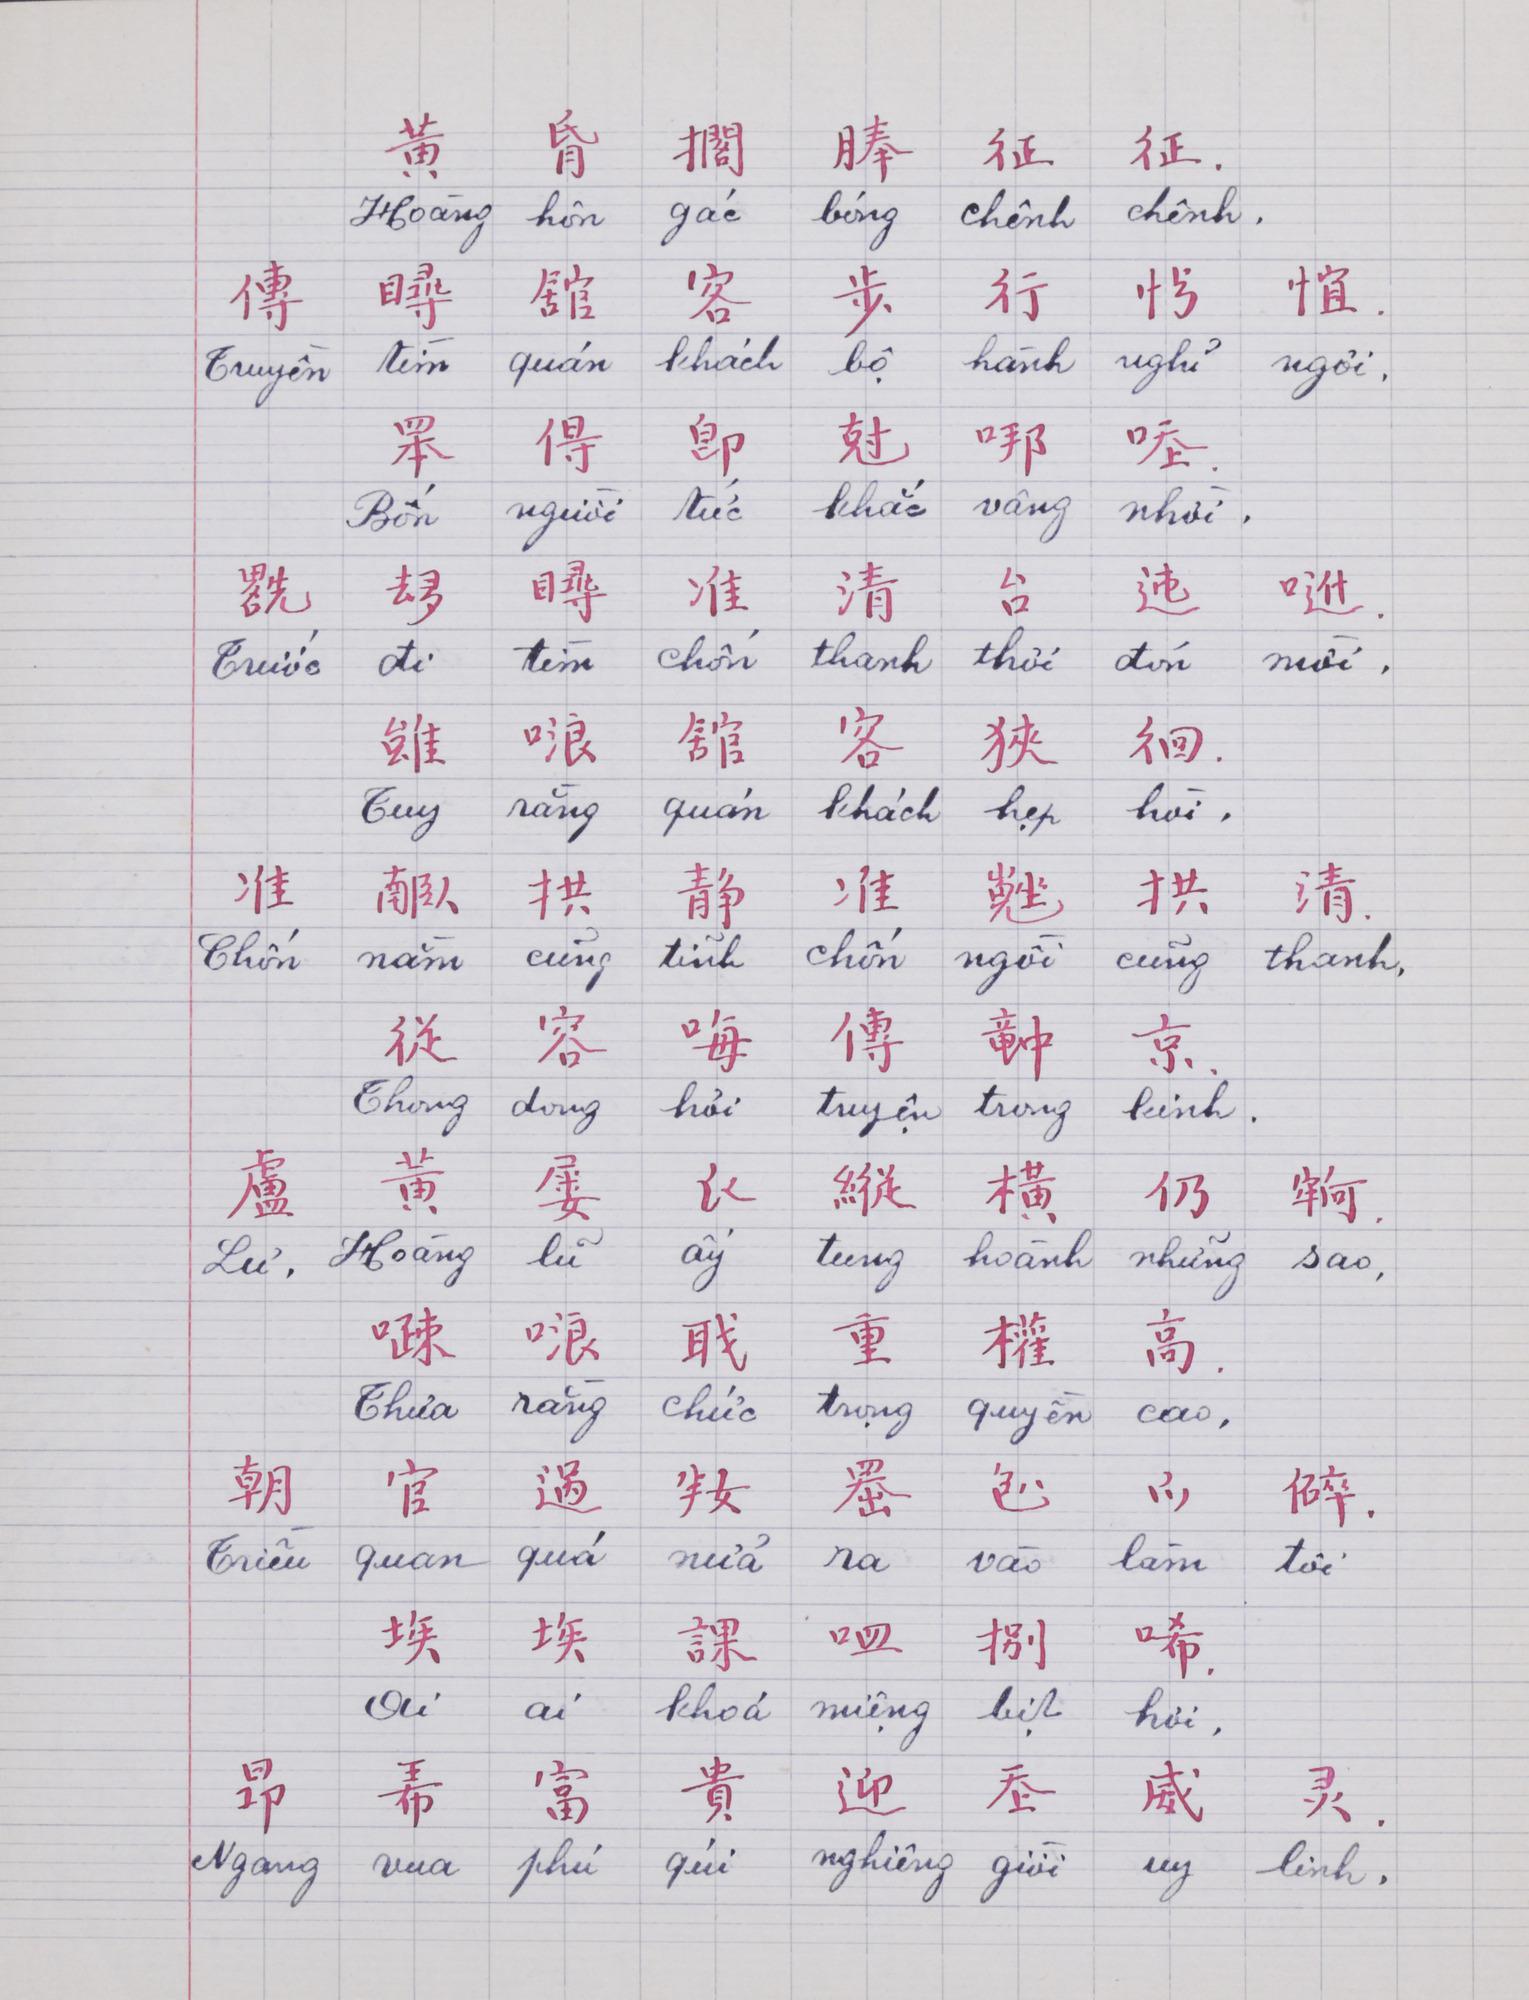 黃 昏 擱 𣈖 征 征.
Hoàng hôn gác bóng chênh chênh.
傳 𥆂 舘 客 步 行 𢪱 愃.
Truyền tìm quán khách bộ hành nghỉ ngơi.
𦊛 㝵 即 尅 哪 𡁎.
Bốn người tức khắc vâng nhời.
𠓀 𠫾 𥆂 准 清 台 迍 𠶆.
Trước đi tìm chốn thanh thơi đón mời.
雖 哴 舘 客 狹 徊.
Tuy rằng quán khách hẹp hòi.
准 𦣰 拱 静 准 𡎢 拱 清.
Chốn nằm cũng tĩnh chốn ngồi cũng thanh.
從 容 𠳨 傳 𥪝 京.
Thong dong hỏi truyện trong kinh.
盧 黃 屡 𧘇 縱 橫 仍 𡫡.
Lư, Hoàng lũ ấy tung hoành những sao.
𠽔 哴 聀 重 權 高.
Thưa rằng chức trọng quyền cao.
朝 官 過 姅 𦋦 𠓨 𪜀 碎.
Triều quan quá nửa ra vào làm tôi
埃 埃 課 𠰘 捌 唏.
Ai ai khoá miệng bịt hơi.
昂 𢂜 富 貴 迎 𡗶 威 灵.
Ngang vua phú quí nghiêng giời uy linh.